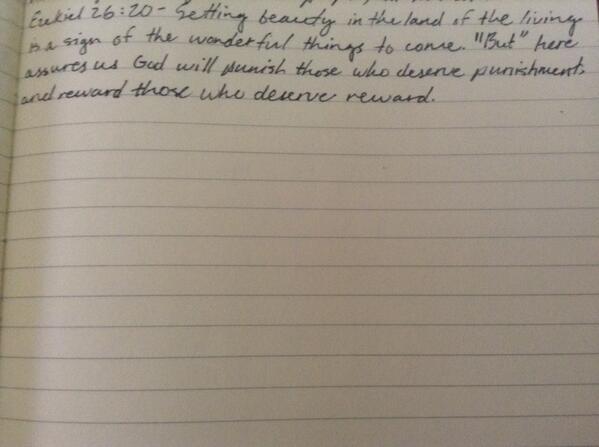 Ezekiel 26:20 - Setting beauty in the land of the living
is a sign of the wonderful things to come. "But" here
assures us God will punish those who deserve punishment,
and reward those who deserve reward.